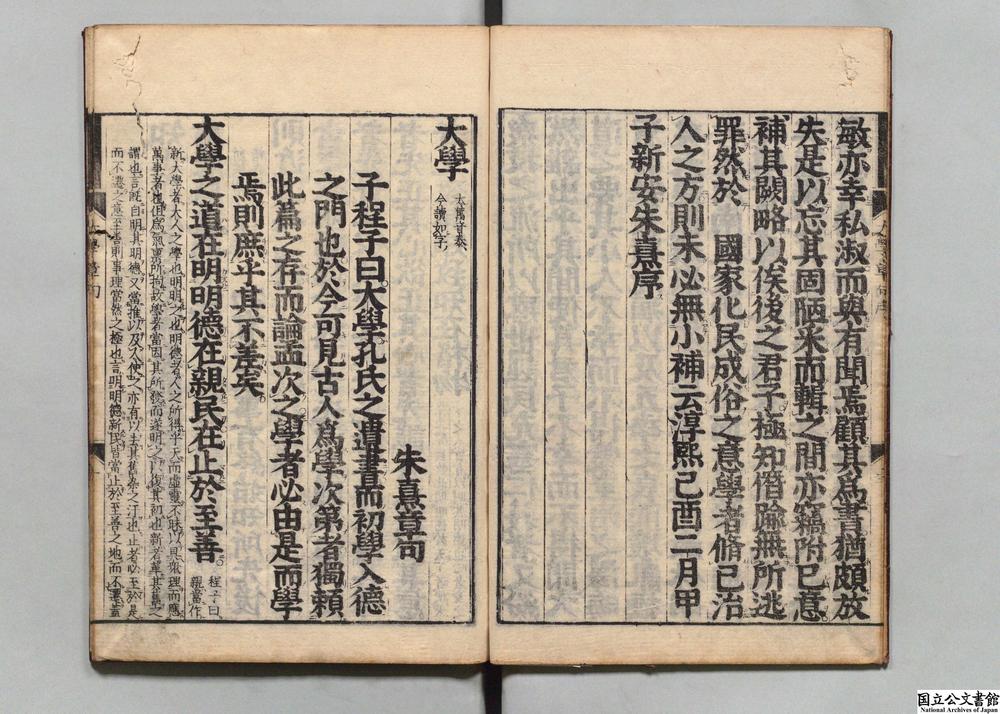 敏亦幸私淑而與有聞焉顧其爲書猶頗放
失是以忘其固陋釆而輯之間亦竊附已意
補其闕略以俟後之君子極知僭踰無所逃
罪然於 國家化民成俗之意學者脩已治
人之方則未必無小補云淳熙己酉二月甲
子新安朱熹序
大學 大舊音泰
今讀如字
朱熹章句
子程子曰大學孔氏之遺書而初學入德
之門也於今可見古人爲學次第者獨賴
此篇之存而論孟次之學者必由是而學
焉則庶乎其不差矣
大學之道在明明德在親民在止於至善 程子曰
親當作
新大學者大人之學也明明之也明德者人之所得乎天而虛靈不昧以具衆理而應
萬事者也但爲氣禀所拘故學者當因其所發而遂明之以復其初也新者革其舊之
謂也言既自明其明德又當推以及人使之亦有以去其舊染之汙也止者必至於是
而不遷之意至善則事理當然之極也言明明德新民皆當止於至善之地而不遷蓋
国立公文書館
National Archives of Japan